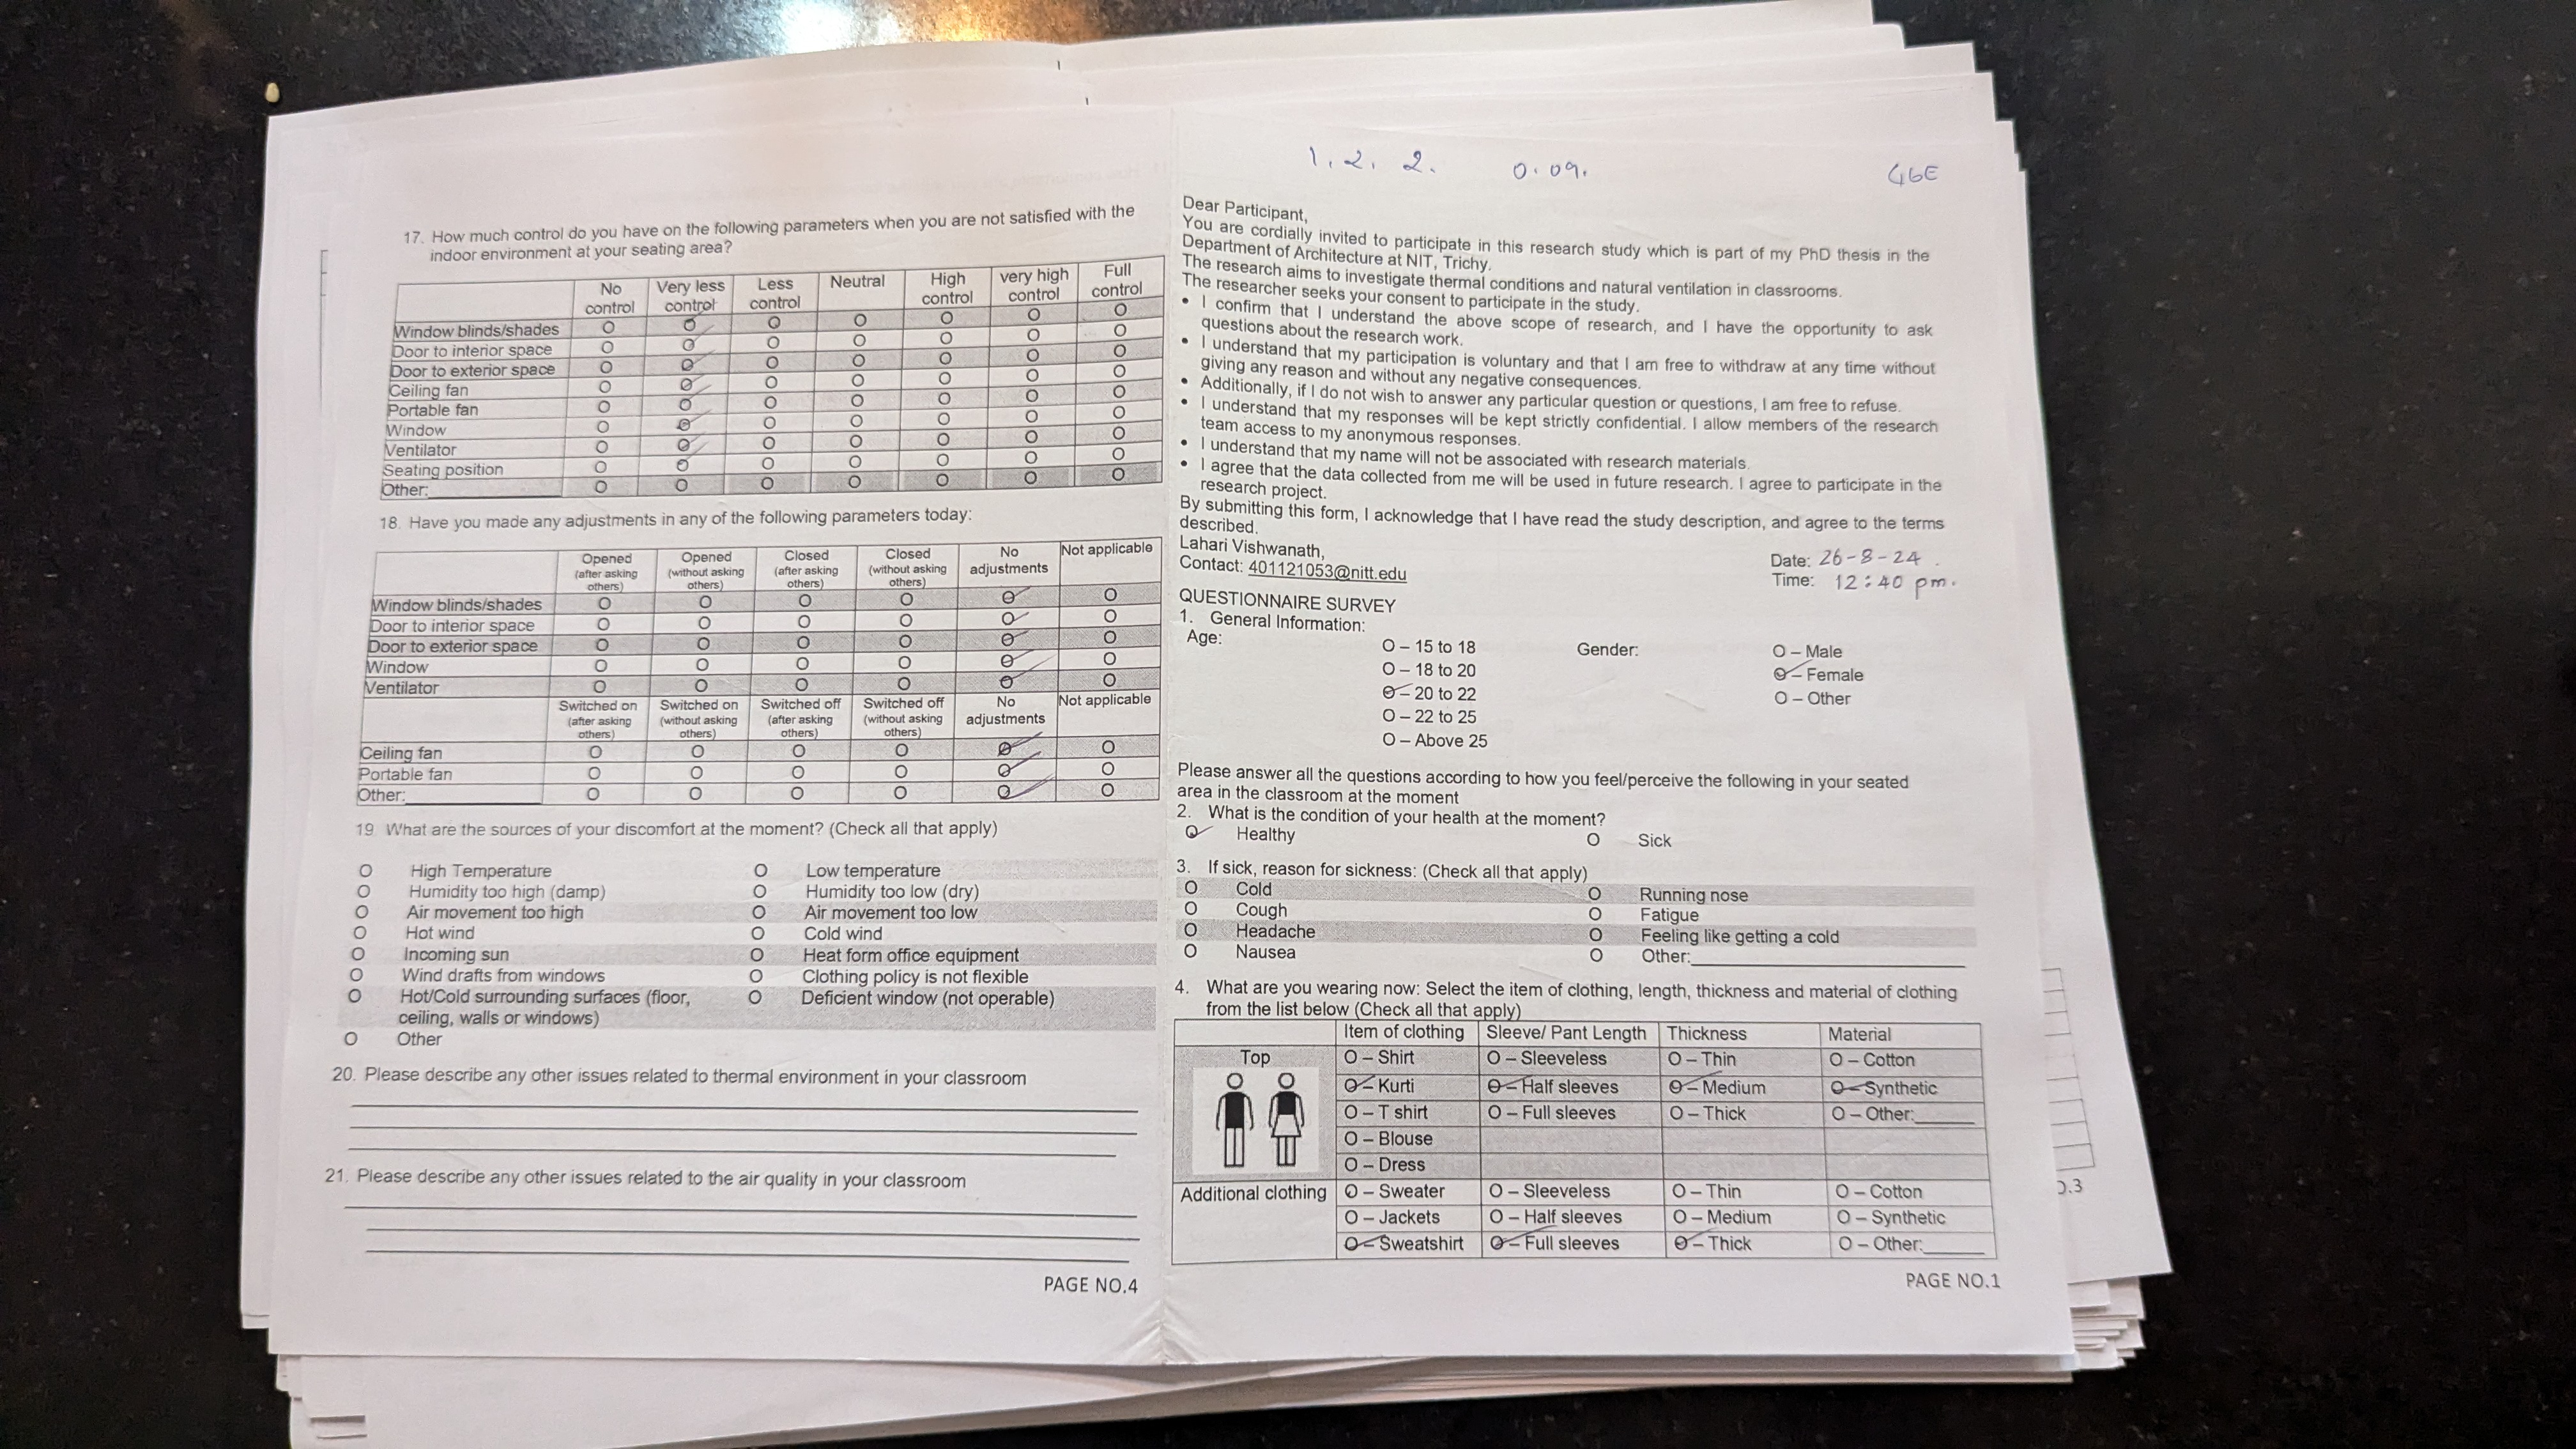 17. How much control do you have on the following parameters when you are not satisfied with the
indoor environment at your seating area?
No control Very less control Less control Neutral High control very high control Full control
Window blinds/shades O O O O O O O
Door to interior space O O O O O O O
Door to exterior space O O O O O O O
Ceiling fan O O O O O O O
Portable fan O O O O O O O
Window O O O O O O O
Ventilator O O O O O O O
Seating position O O O O O O O
Other: O O O O O O O
18. Have you made any adjustments in any of the following parameters today:
Opened (after asking others) Opened (without asking others) Closed (after asking others) Closed (without asking others) No adjustments Not applicable
Window blinds/shades O O O O O O
Door to interior space O O O O O O
Door to exterior space O O O O O O
Window O O O O O O
Ventilator O O O O O O
Switched on (after asking others) Switched on (without asking others) Switched off (after asking others) Switched off (without asking others) No adjustments Not applicable
Ceiling fan O O O O O O
Portable fan O O O O O O
Other: O O O O O O
19 What are the sources of your discomfort at the moment? (Check all that apply)
O High Temperature O Low temperature
O Humidity too high (damp) O Humidity too low (dry)
O Air movement too high O Air movement too low
O Hot wind O Cold wind
O Incoming sun O Heat form office equipment
O Wind drafts from windows O Clothing policy is not flexible
O Hot/Cold surrounding surfaces (floor, O Deficient window (not operable)
ceiling, walls or windows)
O Other
20. Please describe any other issues related to thermal environment in your classroom
21. Please describe any other issues related to the air quality in your classroom
PAGE NO.4
1. 2. 2. 0.09. G6E
Dear Participant,
You are cordially invited to participate in this research study which is part of my PhD thesis in the
Department of Architecture at NIT, Trichy.
The research aims to investigate thermal conditions and natural ventilation in classrooms.
The researcher seeks your consent to participate in the study.
• I confirm that I understand the above scope of research, and I have the opportunity to ask
questions about the research work.
• I understand that my participation is voluntary and that I am free to withdraw at any time without
giving any reason and without any negative consequences.
• Additionally, if I do not wish to answer any particular question or questions, I am free to refuse.
• I understand that my responses will be kept strictly confidential. I allow members of the research
team access to my anonymous responses.
• I understand that my name will not be associated with research materials.
• I agree that the data collected from me will be used in future research. I agree to participate in the
research project.
By submitting this form, I acknowledge that I have read the study description, and agree to the terms
described.
Lahari Vishwanath, Date: 26-8-24.
Contact: 401121053@nitt.edu Time: 12:40 pm.
QUESTIONNAIRE SURVEY
1. General Information:
Age: O – 15 to 18 Gender: O – Male
O – 18 to 20 O – Female
O – 20 to 22 O – Other
O – 22 to 25
O – Above 25
Please answer all the questions according to how you feel/perceive the following in your seated
area in the classroom at the moment
2. What is the condition of your health at the moment?
O Healthy O Sick
3. If sick, reason for sickness: (Check all that apply)
O Cold O Running nose
O Cough O Fatigue
O Headache O Feeling like getting a cold
O Nausea O Other:
4. What are you wearing now: Select the item of clothing, length, thickness and material of clothing
from the list below (Check all that apply)
Item of clothing Sleeve/ Pant Length Thickness Material
Top O – Shirt O – Sleeveless O – Thin O – Cotton
O – Kurti O – Half sleeves O – Medium O – Synthetic
O – T shirt O – Full sleeves O – Thick O – Other:
O – Blouse
O – Dress
Additional clothing O – Sweater O – Sleeveless O – Thin O – Cotton
O – Jackets O – Half sleeves O – Medium O – Synthetic
O – Sweatshirt O – Full sleeves O – Thick O – Other:
PAGE NO.1